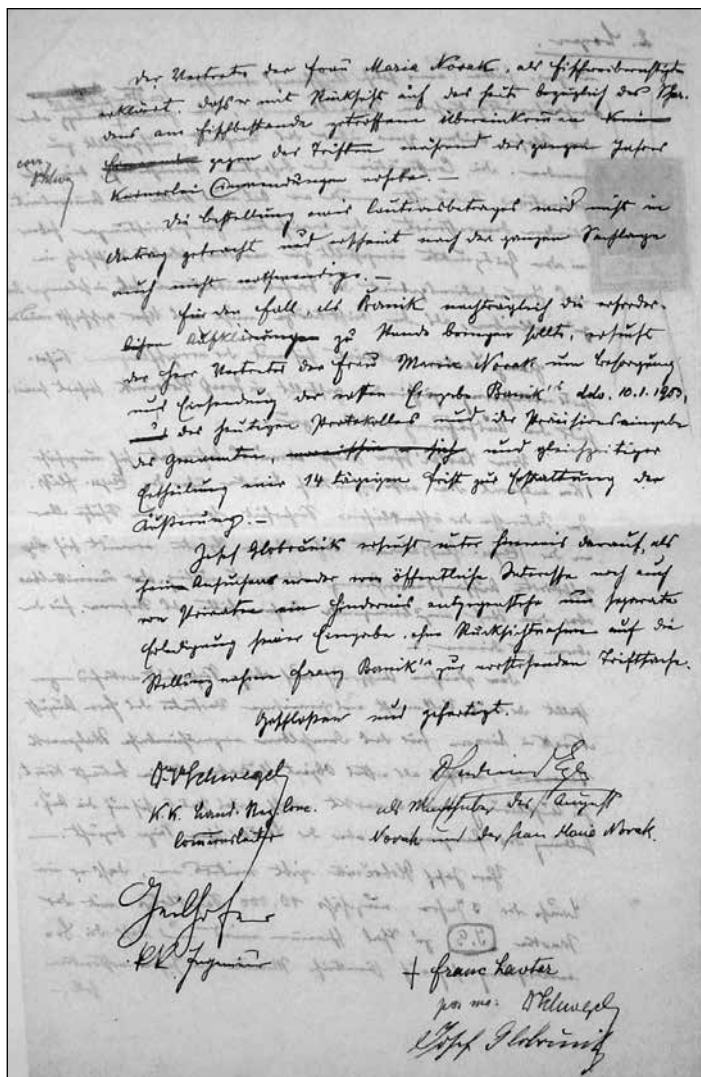 Der Vertreter der Frau Maria Novak, als Fischereiberechtigte
erklärt, dass er mit Rücksicht auf das heute bezüglich des Scha-
dens am Fischbestande getroffene Übereinkommen
gegen das Triften während des ganzen Jahres
keinerlei Einwendungen erhebe.—
Die Bestellung eines Cautionsbetrages wird nicht in
Antrag gebracht und erscheint nach der ganzen Sachlage
auch nicht nothwendig.—
Für den Fall, als Banik nachträglich die erforder-
lichen Aufklärungen zu Stande bringen sollte, ersucht
der Herr Vertreter der Frau Maria Novak um Besorgung
und Einsendung der ersten Eingabe Banik's ddo. 10.1.1903,
des heutigen Protokolles und der Präzisionseingabe
des Genannten, und gleichzeitiger
Ertheilung einer 14 tägigen Frist zur Erstattung der
Äußerung.—
Josef Globočnik ersucht unter Hinweis darauf, als
seinem Ansuchen weder von öffentliche Interesse noch auch
von Privaten ein Hindernis entgegenstehe um separate
Erledigung seiner Eingabe, ohne Rücksichtnahme auf die
Stellungnahme Franz Banik's zur vorstehenden Triftsache.
Geschlossen und gefertigt.
Dr Schwegel
K.K. Land. Reg. Com.
Commissleiter
als Machthaber des August
Novak und der Frau Maria Novak.
Geilhofer
kk. Ingenieur
J.G.
+ Franc Lavter
por me: Dr Schwegel
Josef Globočnik